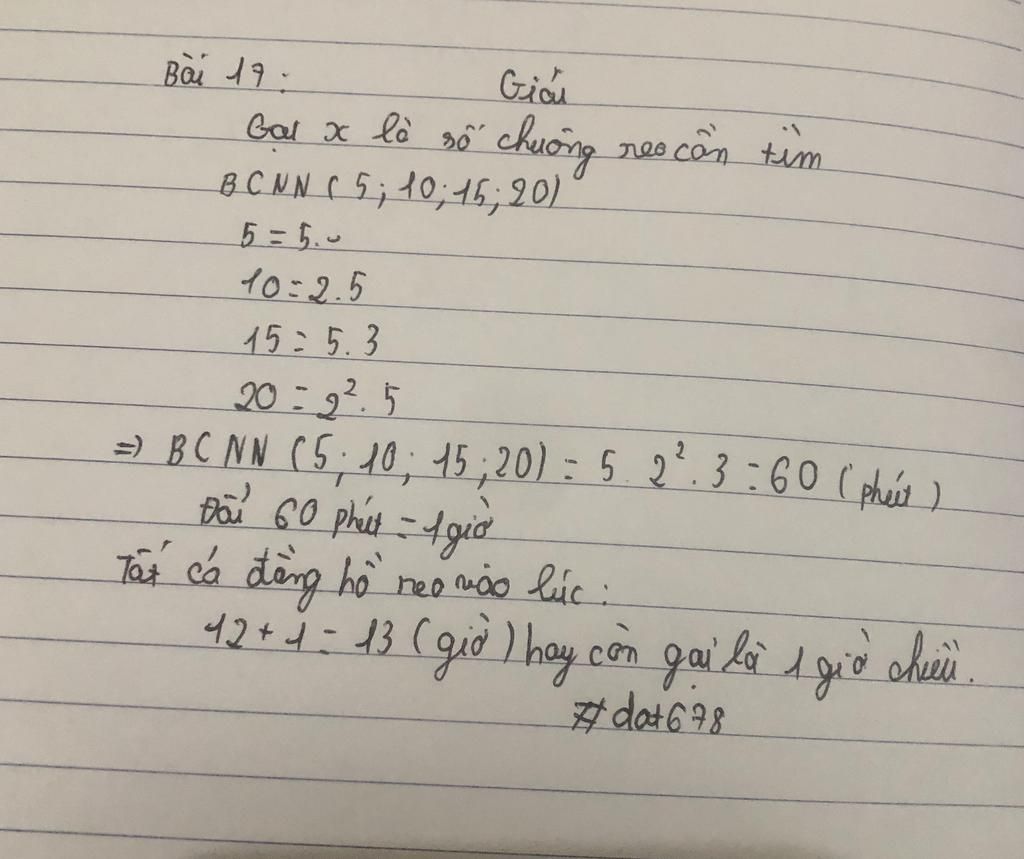 Bài 17: Giải
Gọi x là số chuông reo cần tìm
BCNN (5; 10; 15; 20)
5 = 5.
10 = 2.5
15 = 5.3
20 = 2². 5
=> BCNN (5; 10; 15; 20) = 5. 2². 3 = 60 (phút)
Đổi 60 phút = 1 giờ
Tất cả đồng hồ reo vào lúc:
12 + 1 = 13 (giờ) hay còn gọi là 1 giờ chiều.
#dat678